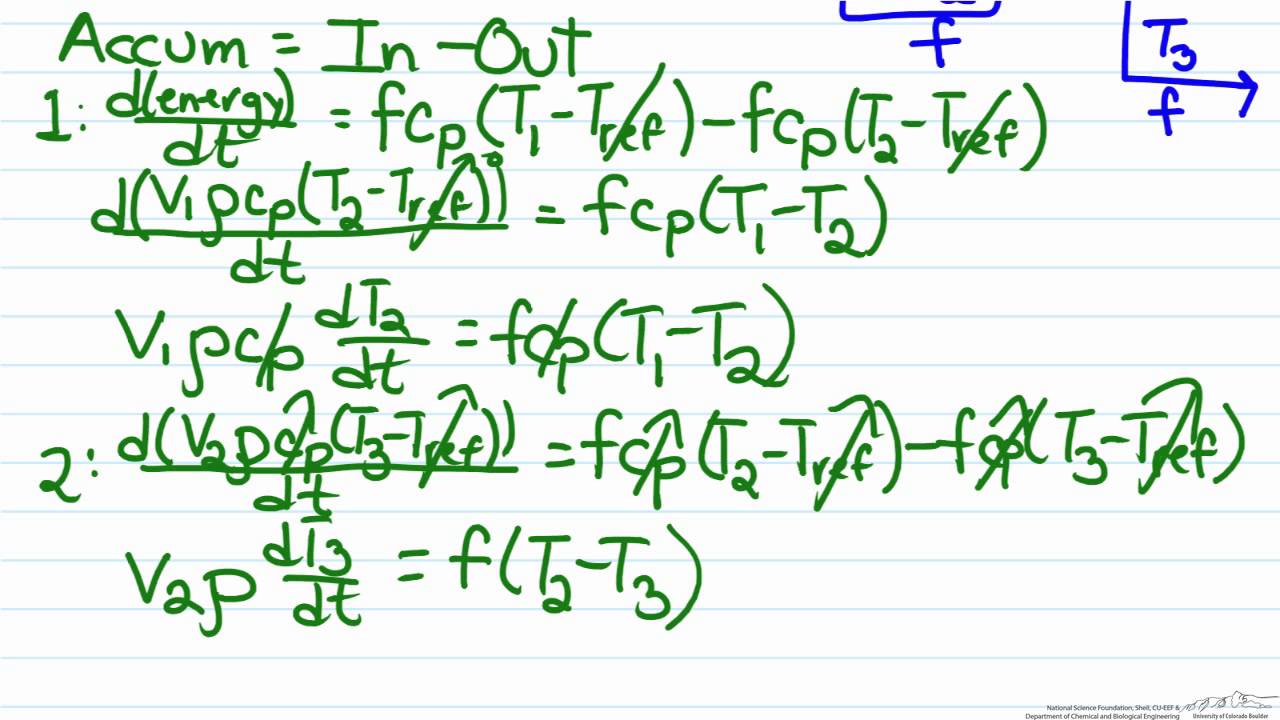 Accum = In - Out
f
T₃
f
1: d(energy)/dt = fcₚ(T₁ - Tref) - fcₚ(T₂ - Tref)
d(V₁ρcₚ(T₂ - Tref))/dt = fcₚ(T₁ - T₂)
V₁ρcₚ dT₂/dt = fcₚ(T₁ - T₂)
2: d(V₂ρcₚ(T₃ - Tref))/dt = fcₚ(T₂ - Tref) - fcₚ(T₃ - Tref)
V₂ρ dT₃/dt = f(T₂ - T₃)
National Science Foundation, Shell, CU-EEF &
Department of Chemical and Biological Engineering
University of Colorado Boulder